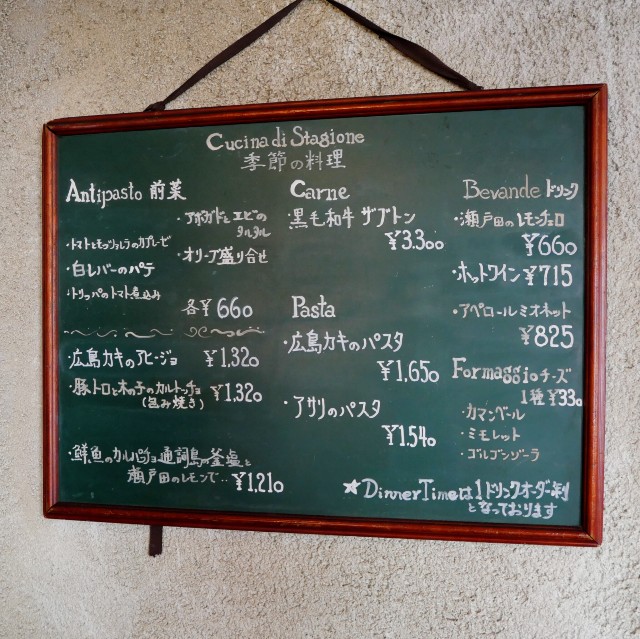 Cucina di Stagione
季節の料理
Antipasto 前菜
・アボカドとエビの
タルタル
・トマトとモッツァレラのカプレーゼ
・オリーブ盛り合せ
・白レバーのパテ
・トリッパのトマト煮込み
各¥660
・広島カキのアヒージョ ¥1.320
・豚トロと木の子のカルトッチョ
(包み焼き) ¥1.320
・鮮魚のカルパッチョ 通詞島の釜塩と
瀬戸田のレモンで‥ ¥1,210
Carne
・黒毛和牛 ザブトン
¥3.300
Pasta
・広島カキのパスタ
¥1.650
・アサリのパスタ
¥1.540
Bevande ドリンク
・瀬戸田のレモンチェロ
¥660
・ホットワイン ¥715
・アペロールミオネット
¥825
Formaggio チーズ
1種 ¥330
・カマンベール
・ミモレット
・ゴルゴンゾーラ
★Dinner Timeは1ドリンクオーダー制
となっております